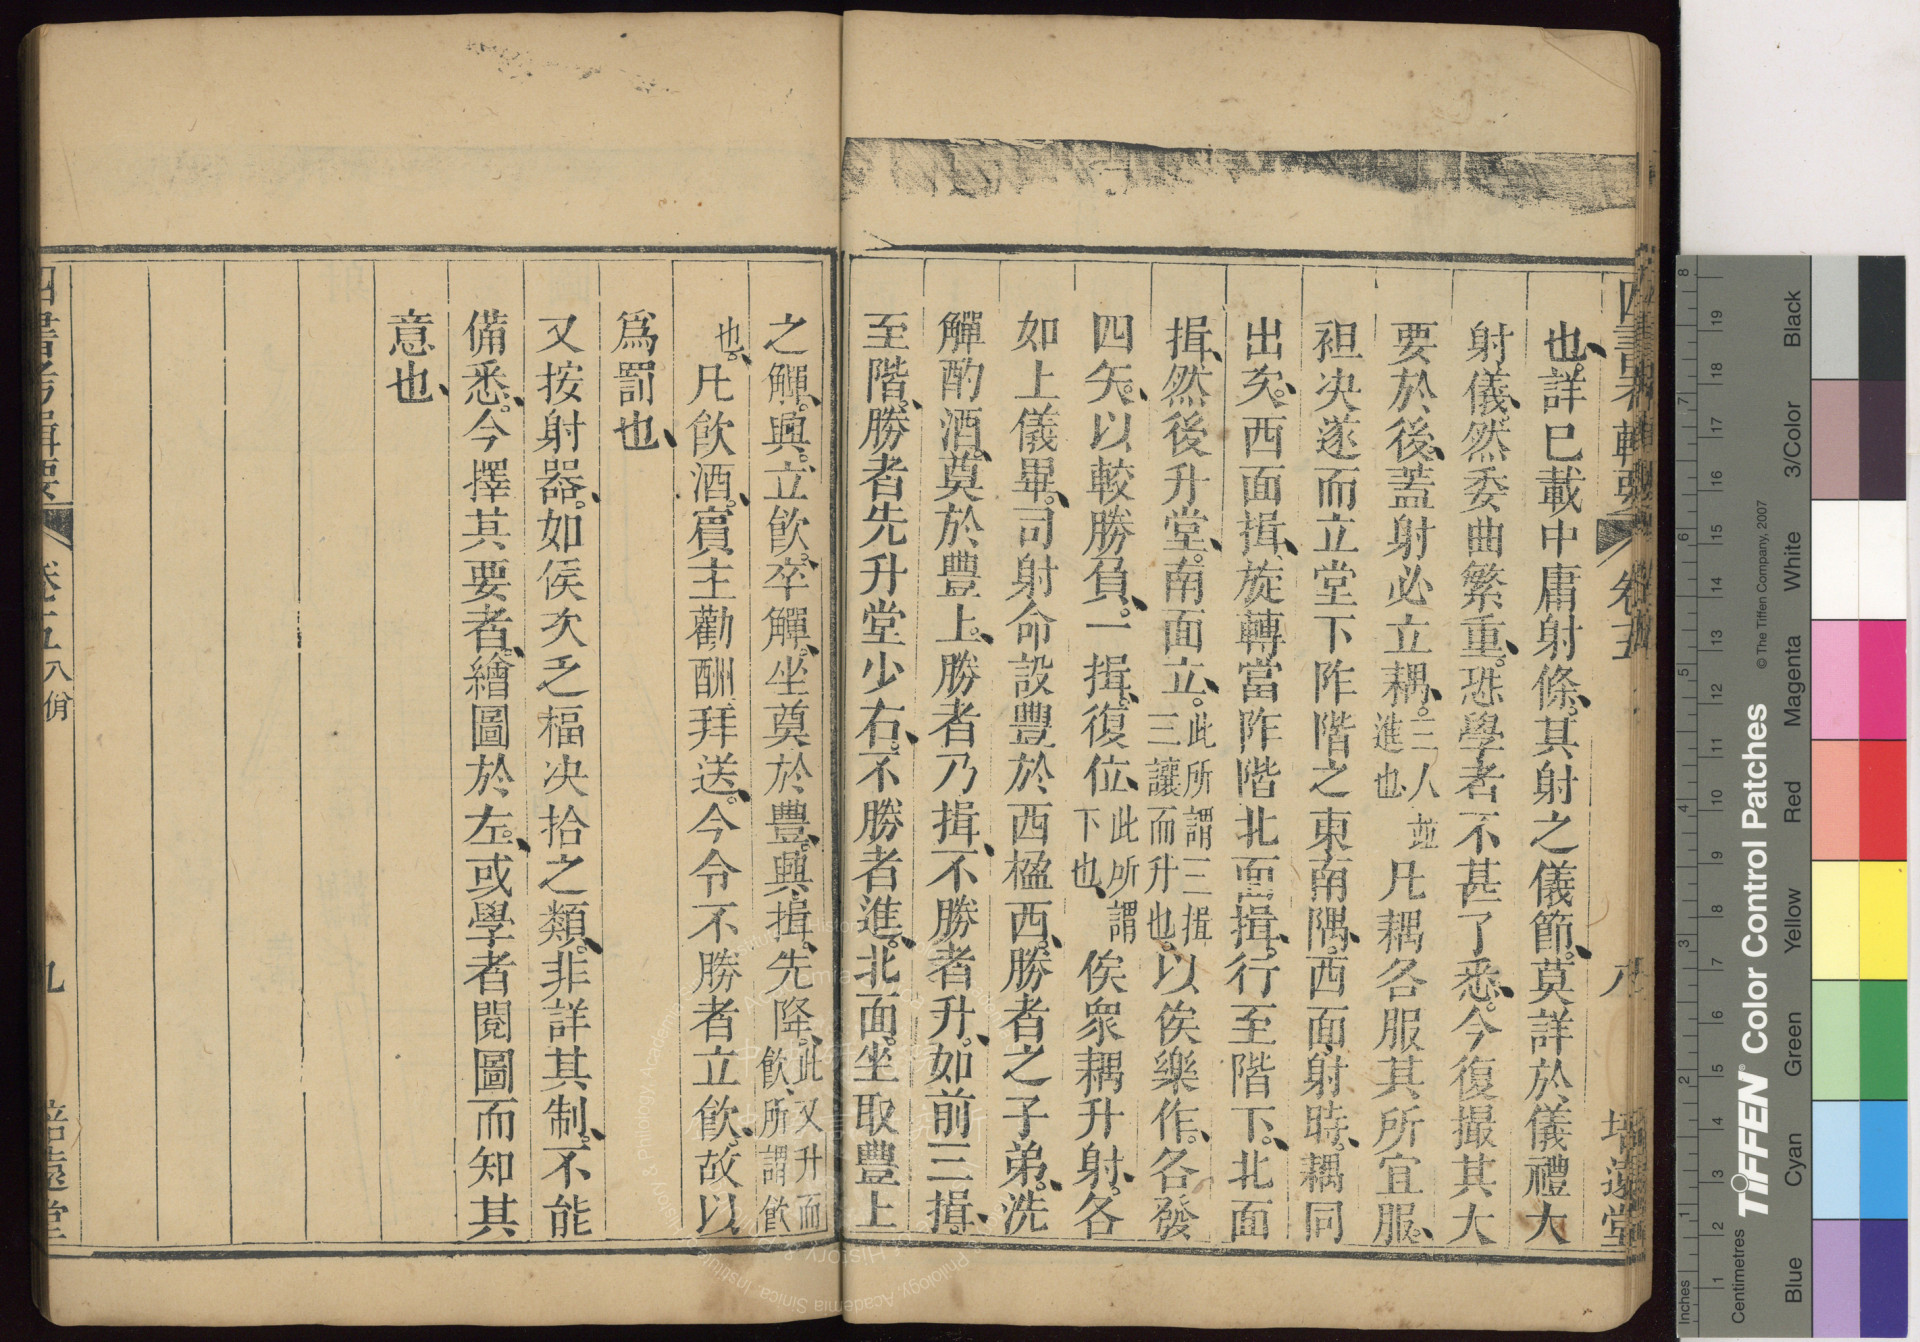 也詳已載中庸射條其射之儀節莫詳於儀禮大
射儀然委曲繁重恐學者不甚了悉今復撮其大
要於後蓋射必立耦二人並進也凡耦各服其所宜服
袒决遂而立堂下阼階之東南隅西面射時耦同
出次西面揖旋轉當阼階北面揖行至階下北面
揖然後升堂南面立此所謂三揖三讓而升也以俟樂作各發
四矢以較勝負一揖復位此所謂下也俟衆耦升射各
如上儀畢司射命設豐於西楹西勝者之子弟洗
觶酌酒奠於豐上勝者乃揖不勝者升如前三揖
至階勝者先升堂少右不勝者進北面坐取豐上
之觶興立飲卒觶坐奠於豐興揖先降此又升而飲所謂飲
也凡飲酒賓主勸酬拜送今令不勝者立飲故以
爲罰也
又按射器如侯次乏楅决拾之類非詳其制不能
備悉今擇其要者繪圖於左或學者閱圖而知其
意也
四書考輯要 卷五 八佾 九 培遠堂
卷五 八 培遠堂
TIFFEN Color Control Patches
© The Tiffen Company, 2007
Inches
Centimetres
Blue Cyan Green Yellow Red Magenta White 3/Color Black